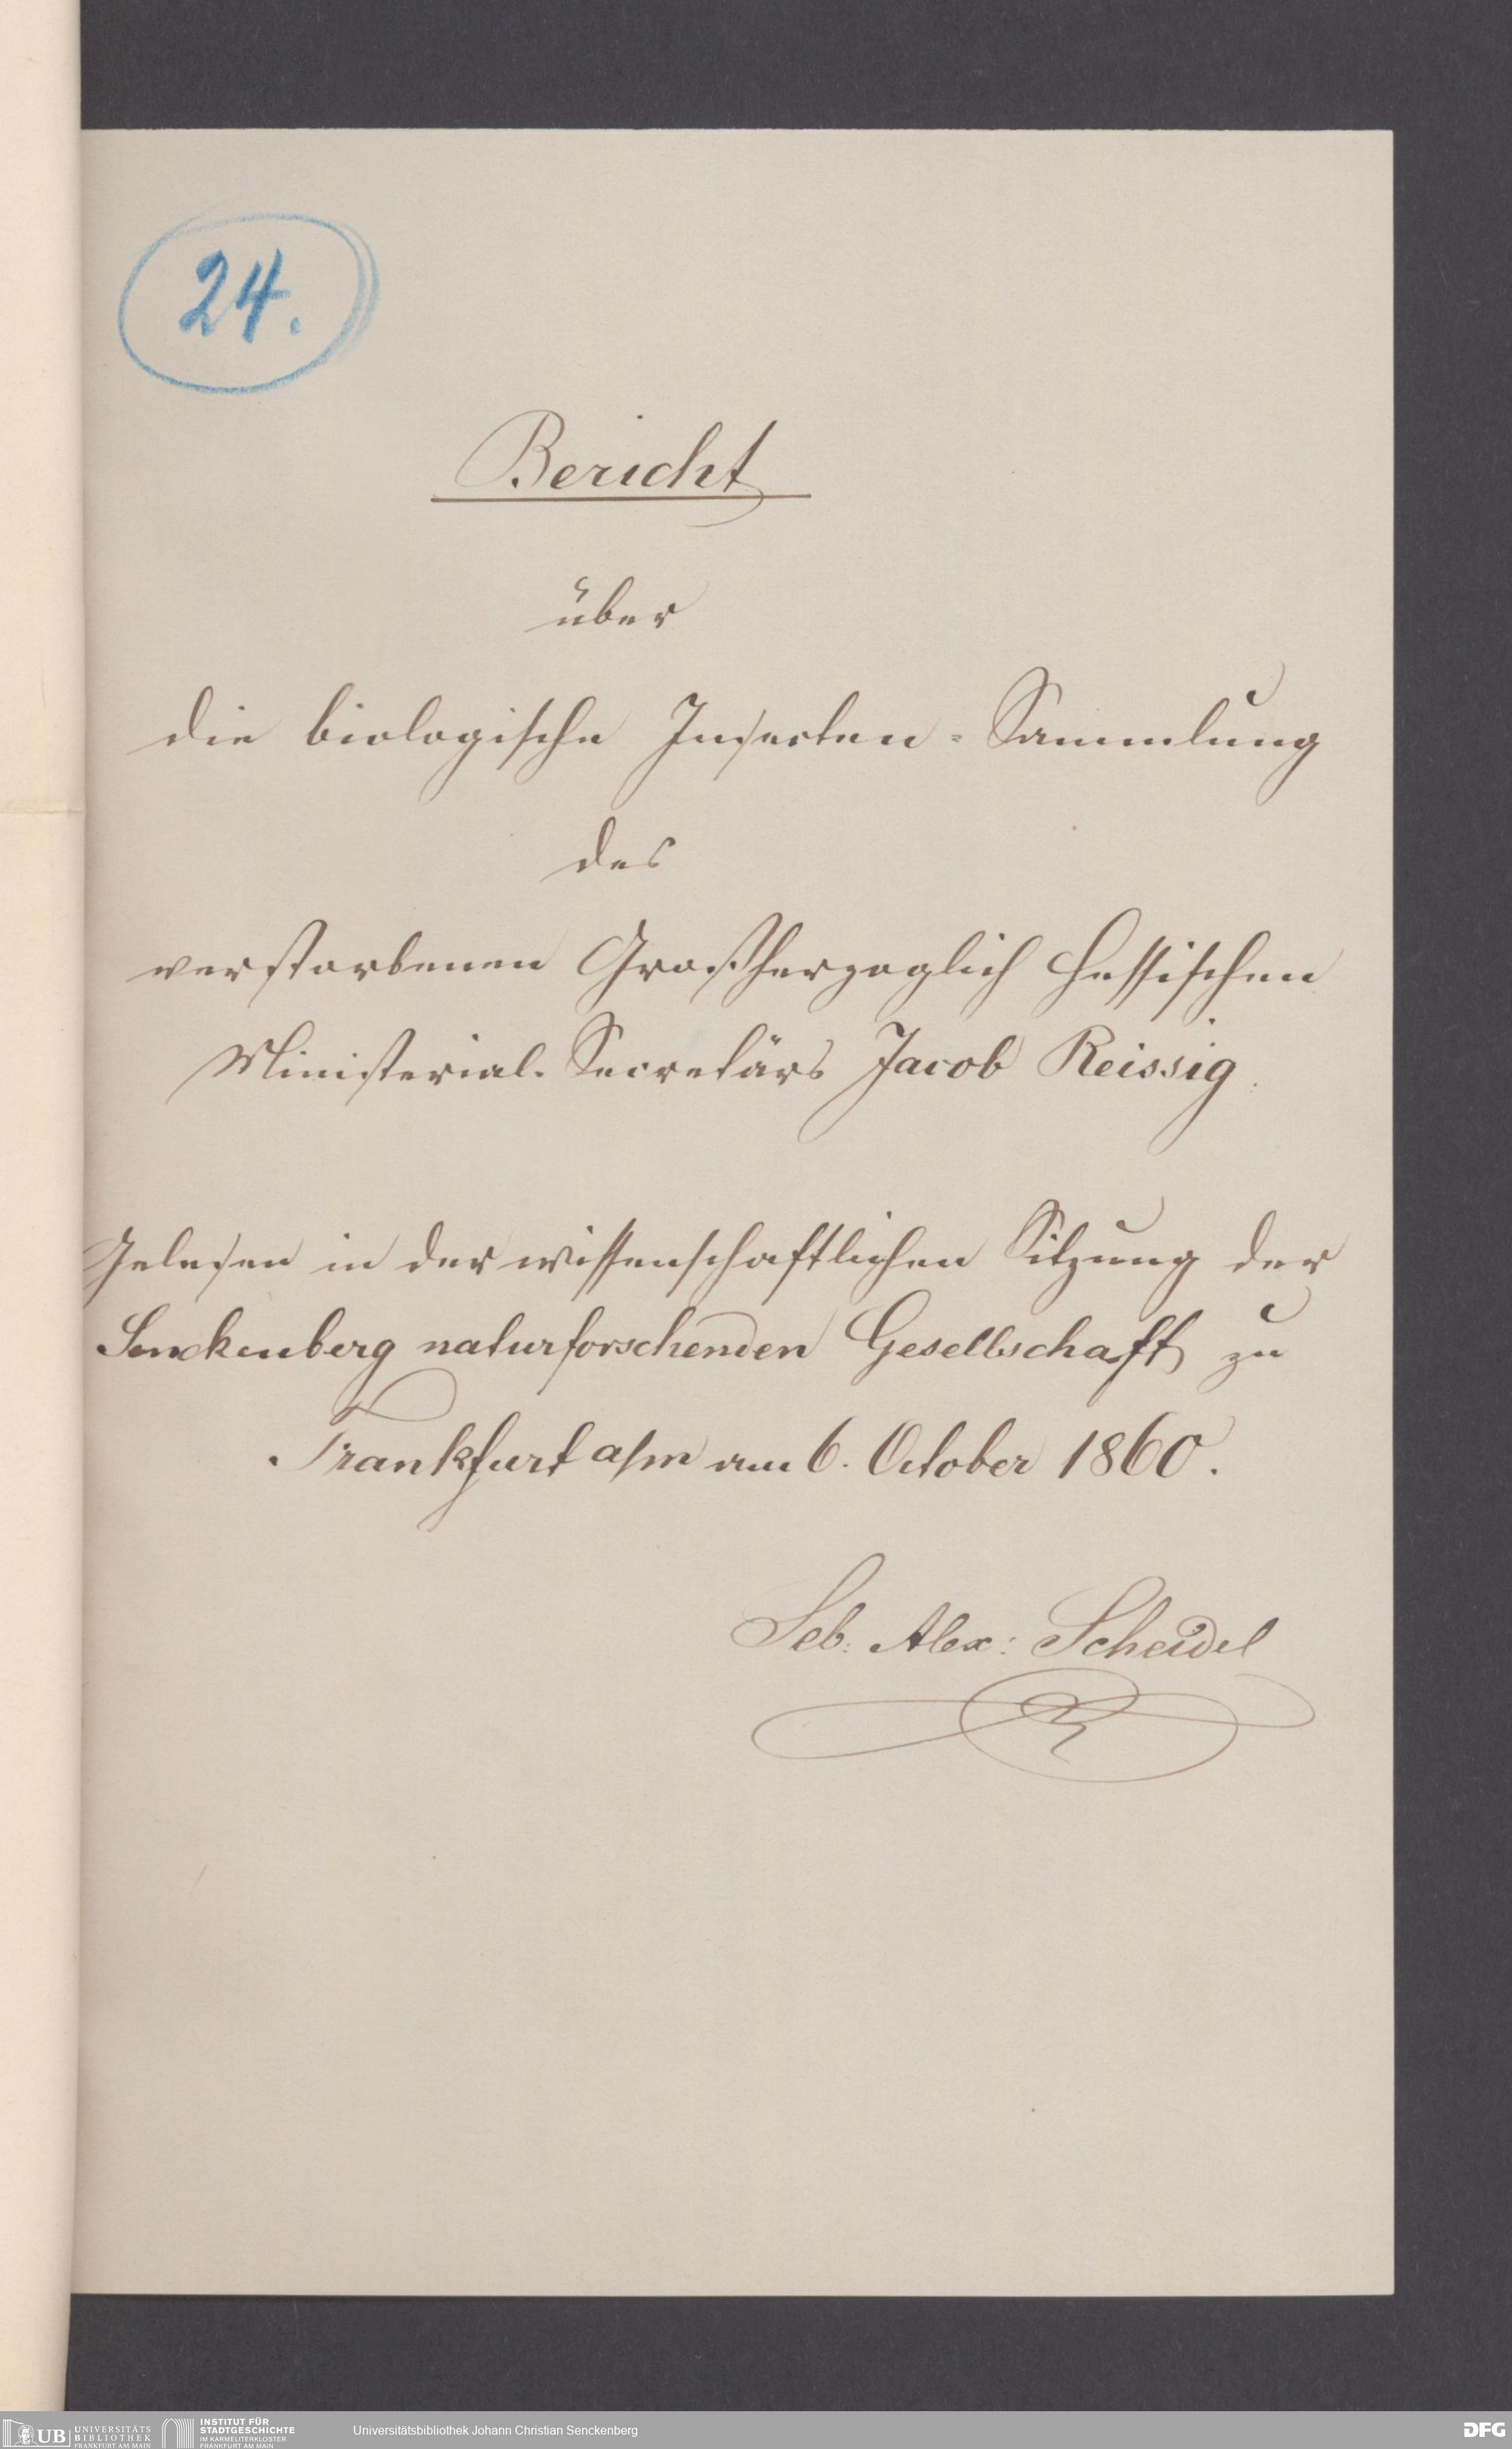 24.
Bericht
über
die biologische Insecten-Sammlung
des
verstorbenen Großherzoglich Hessischen
Ministerial-Secretärs Jacob Reissig.
Gelesen in der wissenschaftlichen Sitzung der
Senckenberg naturforschenden Gesellschaft zu
Frankfurt a/m am 6. October 1860.
Seb: Alex: Scheidel
UB UNIVERSITÄTS BIBLIOTHEK FRANKFURT AM MAIN
INSTITUT FÜR STADTGESCHICHTE IM KARMELITERKLOSTER FRANKFURT AM MAIN
Universitätsbibliothek Johann Christian Senckenberg
DFG